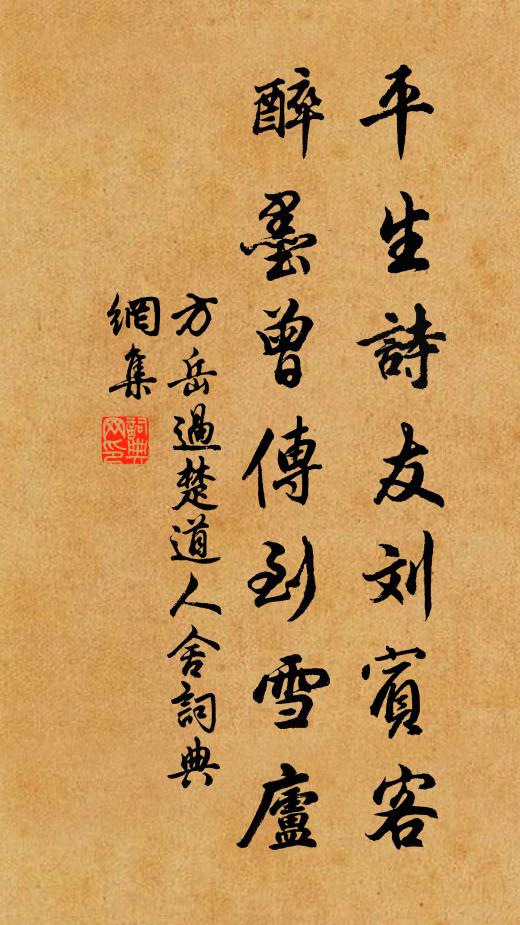 平生詩友刘賓客
醉墨曾傳到雪廬
方岳過楚道人舍詞典
網集
詞典
网印